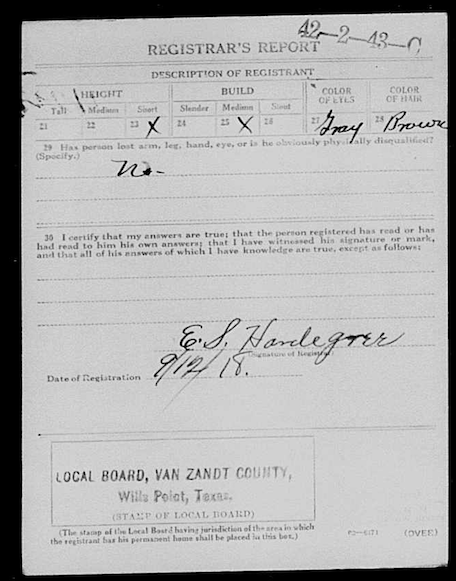 42-2-43-C
REGISTRAR'S REPORT
DESCRIPTION OF REGISTRANT
HEIGHT BUILD COLOR OF EYES COLOR OF HAIR
Tall Medium Short Slender Medium Stout
21 22 23 X 24 25 X 26 27 Gray 28 Brown
29 Has person lost arm, leg, hand, eye, or is he obviously physically disqualified?
(Specify.)
No-
30 I certify that my answers are true; that the person registered has read or has
had read to him his own answers; that I have witnessed his signature or mark,
and that all of his answers of which I have knowledge are true, except as follows:
E. S. Hardegree
(Signature of Registrar)
Date of Registration 9/12/18.
LOCAL BOARD, VAN ZANDT COUNTY,
Wills Point, Texas.
(STAMP OF LOCAL BOARD)
(The stamp of the Local Board having jurisdiction of the area in which
the registrant has his permanent home shall be placed in this box.)
(OVER)